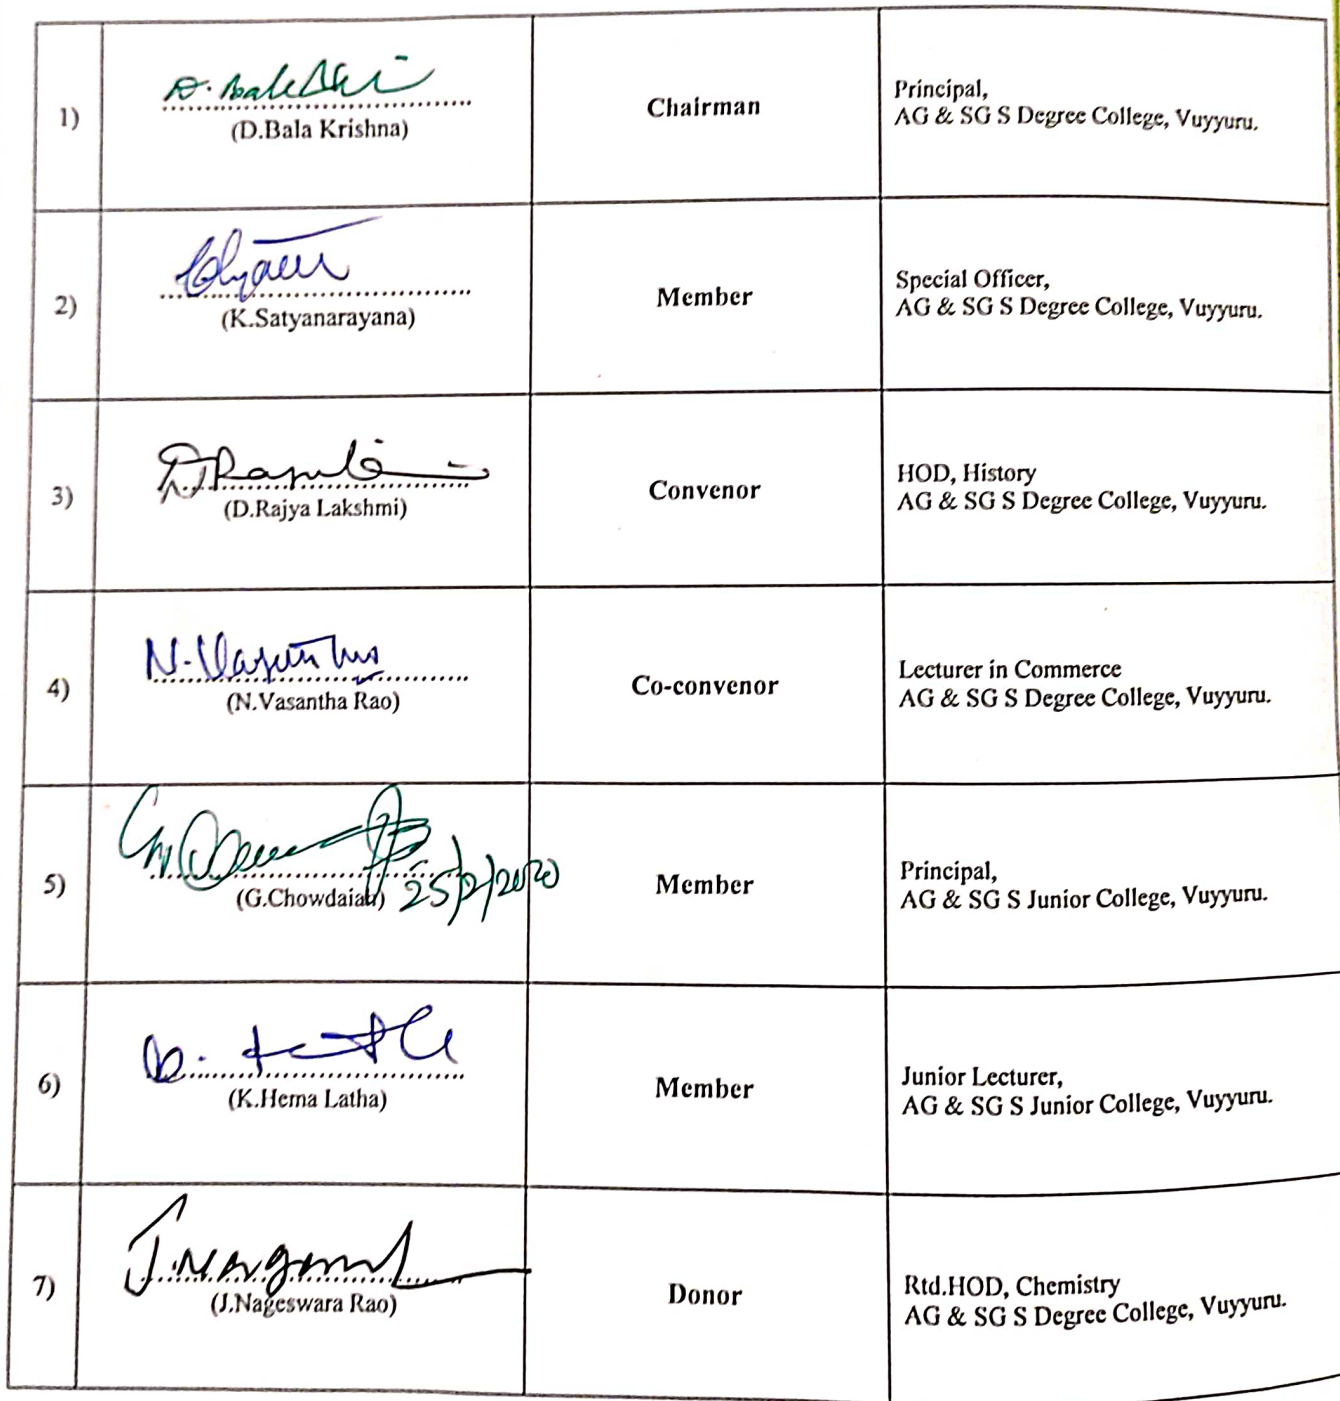 1)
D. Bala Kri
(D.Bala Krishna)
Chairman
Principal,
AG & SG S Degree College, Vuyyuru.
2)
(K.Satyanarayana)
Member
Special Officer,
AG & SG S Degree College, Vuyyuru.
3)
(D.Rajya Lakshmi)
Convenor
HOD, History
AG & SG S Degree College, Vuyyuru.
4)
(N.Vasantha Rao)
Co-convenor
Lecturer in Commerce
AG & SG S Degree College, Vuyyuru.
5)
(G.Chowdaiah)
25/2/2020
Member
Principal,
AG & SG S Junior College, Vuyyuru.
6)
(K.Hema Latha)
Member
Junior Lecturer,
AG & SG S Junior College, Vuyyuru.
7)
(J.Nageswara Rao)
Donor
Rtd.HOD, Chemistry
AG & SG S Degree College, Vuyyuru.